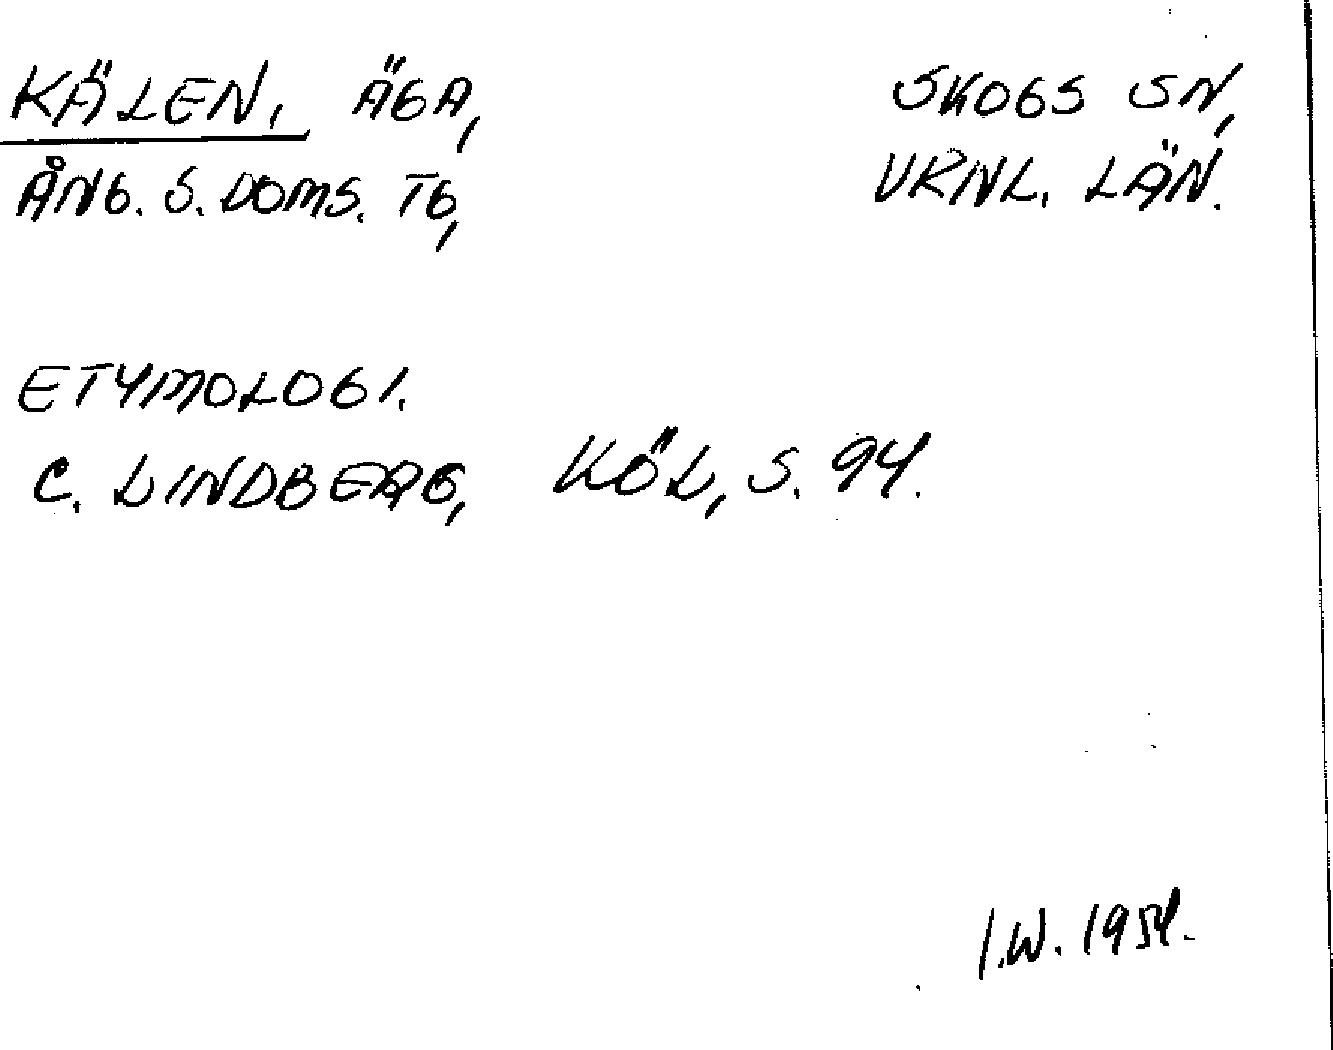 KÄLEN, ÄGA, SKOGS SN,
ÅNG. S. DOMS. TG, VRNL. LÄN.
ETYMOLOGI.
C. LINDBERG, KÖL, S. 94.
I.W. 1954.